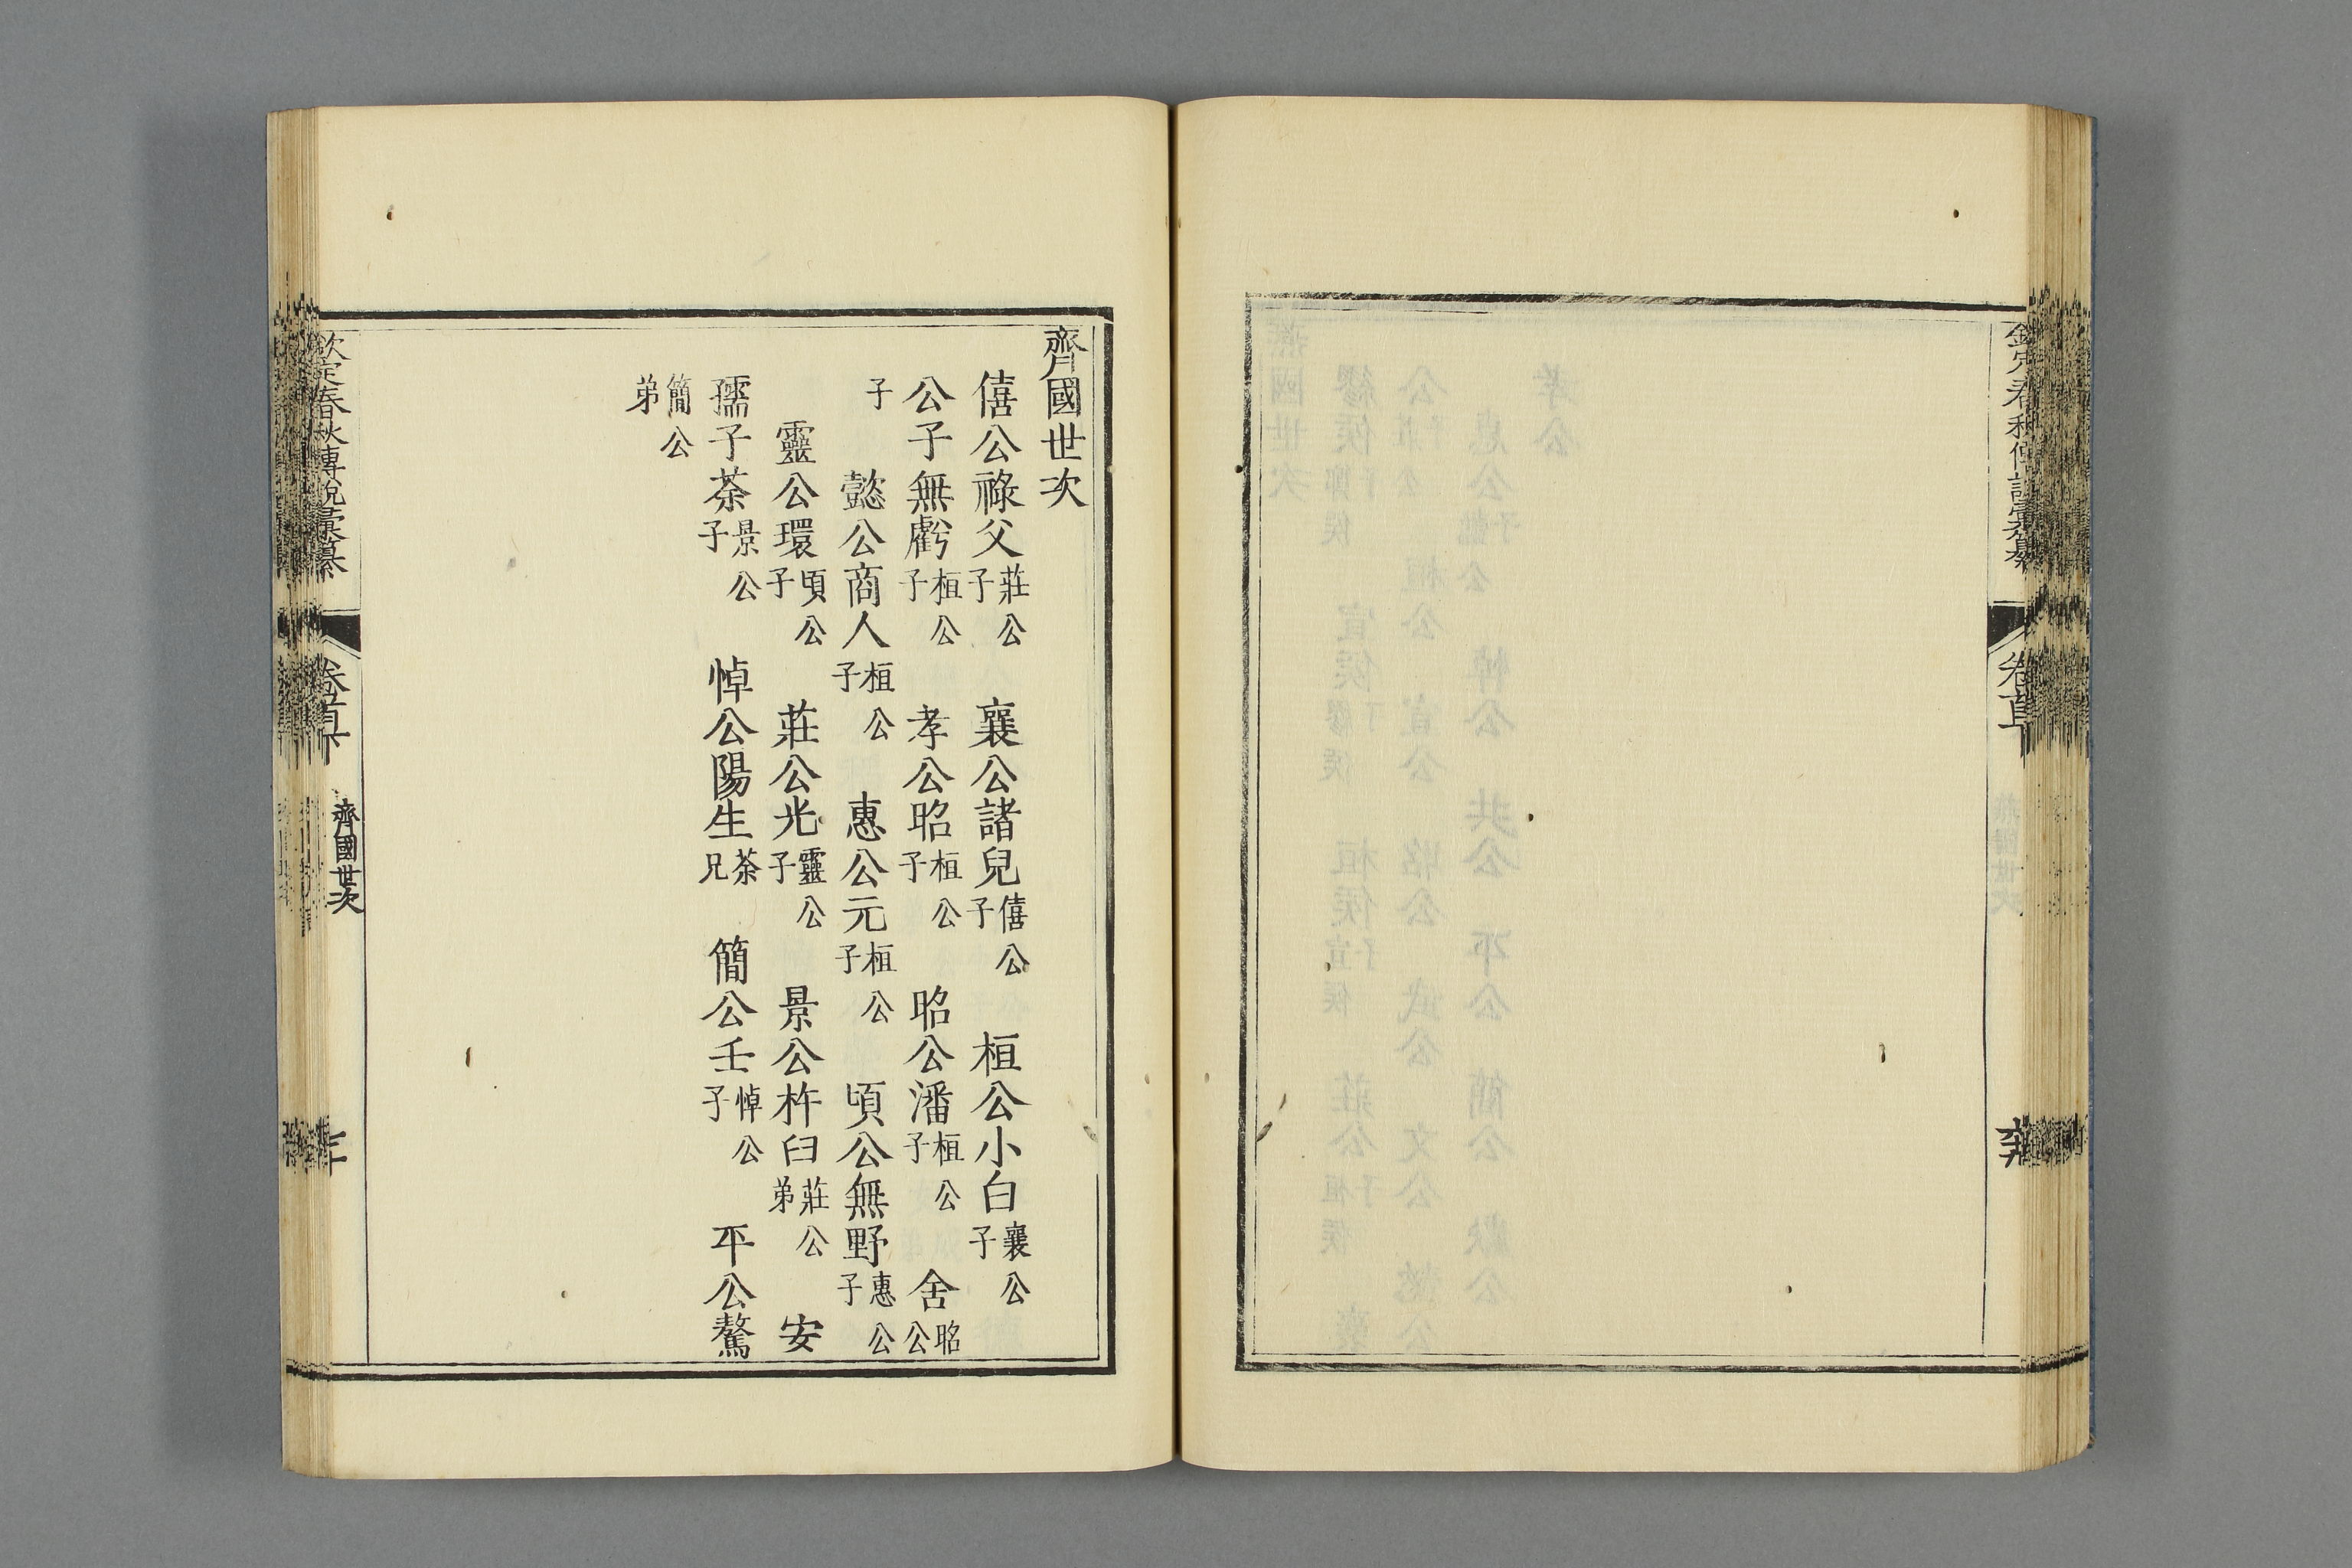 齊國世次
僖公祿父莊公子　襄公諸兒僖公子　桓公小白襄公子
公子無虧桓公子　孝公昭桓公子　昭公潘桓公子　舍昭公
子　懿公商人桓公子　惠公元桓公子　頃公無野惠公子
靈公環頃公子　莊公光靈公子　景公杵臼莊公弟　安
孺子荼景公子　悼公陽生荼兄　簡公壬悼公子　平公驁
簡公弟
欽定春秋傳說彙纂　卷首下　齊國世次